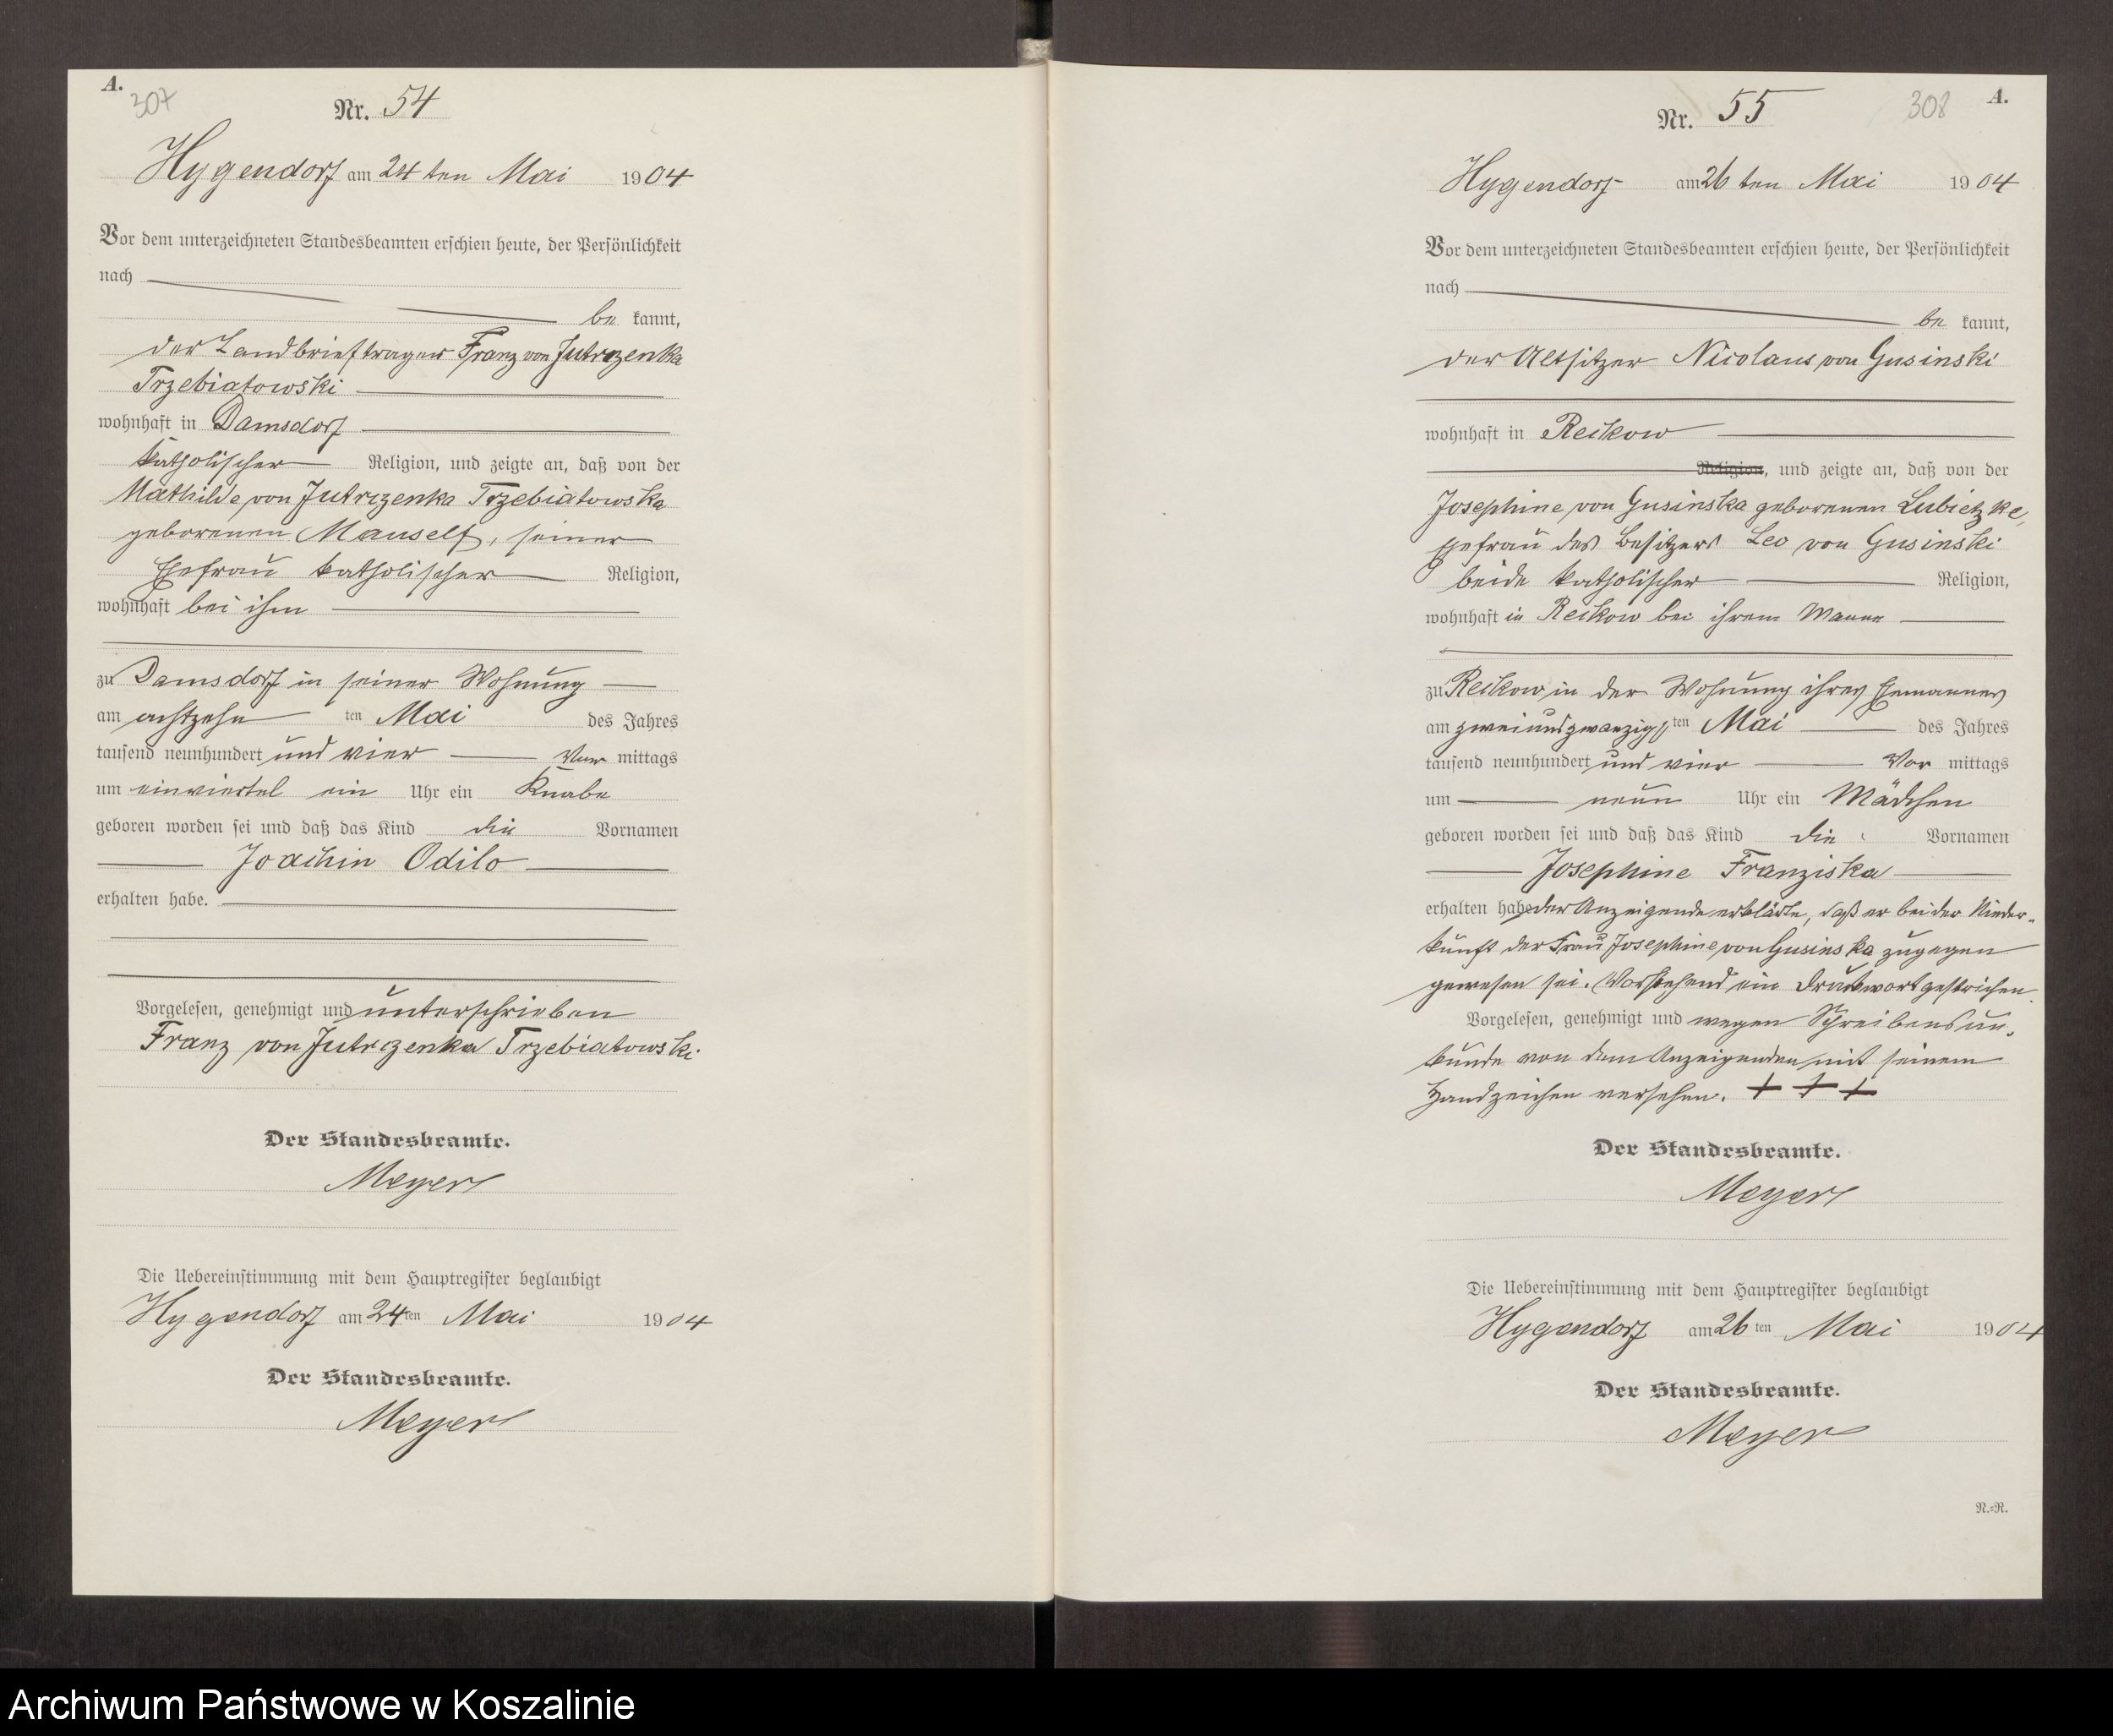 A.
307
Nr. 54
Hygendorf am 24 ten Mai 1904
Vor dem unterzeichneten Standesbeamten erschien heute, der Persönlichkeit
nach
be kannt,
der Landbriefträger Franz von Jutrzenka
Trzebiatowski
wohnhaft in Damsdorf
katholischer Religion, und zeigte an, daß von der
Mathilde von Jutrzenka Trzebiatowska
geborenen Manself, seiner
Ehefrau katholischer Religion,
wohnhaft bei ihm
zu Damsdorf in seiner Wohnung
am achtzehn ten Mai des Jahres
tausend neunhundert und vier mittags
um einviertel ein Uhr ein Knabe
geboren worden sei und daß das Kind die Vornamen
Joachin Odilo
erhalten habe.
Vorgelesen, genehmigt und unterschrieben
Franz von Jutrzenka Trzebiatowski.
Der Standesbeamte.
Meyer
Die Uebereinstimmung mit dem Hauptregister beglaubigt
Hygendorf am 24ten Mai 1904
Der Standesbeamte.
Meyer
308
A.
Nr. 55
Hygendorf am 26 ten Mai 1904
Vor dem unterzeichneten Standesbeamten erschien heute, der Persönlichkeit
nach
be kannt,
der Altsitzer Nicolaus von Gusinski
wohnhaft in Reckow
Religion, und zeigte an, daß von der
Josephine von Gusinska geborenen Lubietzke,
Ehefrau des Besitzers Leo von Gusinski
beide katholischer Religion,
wohnhaft in Reckow bei ihrem Manne
zu Reckow in der Wohnung ihres Ehemannes
am zweiundzwanzigs ten Mai des Jahres
tausend neunhundert und vier Vor mittags
um neun Uhr ein Mädchen
geboren worden sei und daß das Kind die Vornamen
Josephine Franziska
erhalten habe der Anzeigende erklärte, daß er bei der Nieder-
kunft der Frau Josephine von Gusinska zugegen
gewesen sei. Vorstehend ein Druckwort gestrichen.
Vorgelesen, genehmigt und wegen Schreibensun-
kunde von dem Anzeigenden mit seinem
Handzeichen versehen. + + +
Der Standesbeamte.
Meyer
Die Uebereinstimmung mit dem Hauptregister beglaubigt
Hygendorf am 26 ten Mai 1904
Der Standesbeamte.
Meyer
N.=R.
Archiwum Państwowe w Koszalinie